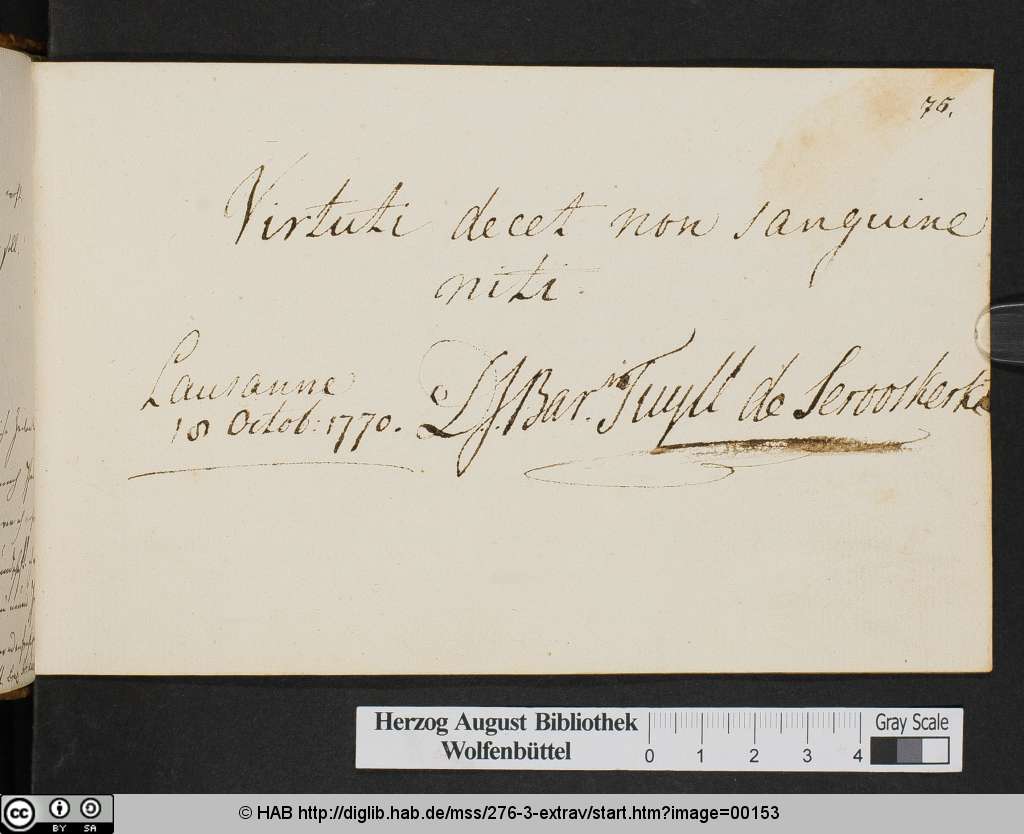 75.
Virtuti decet non sanguine
niti.
Lausanne
18 Octob: 1770.
Bar.ⁿ Tuyll de Serooskerke
Herzog August Bibliothek
Wolfenbüttel
0 1 2 3 4
Gray Scale
BY SA
© HAB http://diglib.hab.de/mss/276-3-extrav/start.htm?image=00153